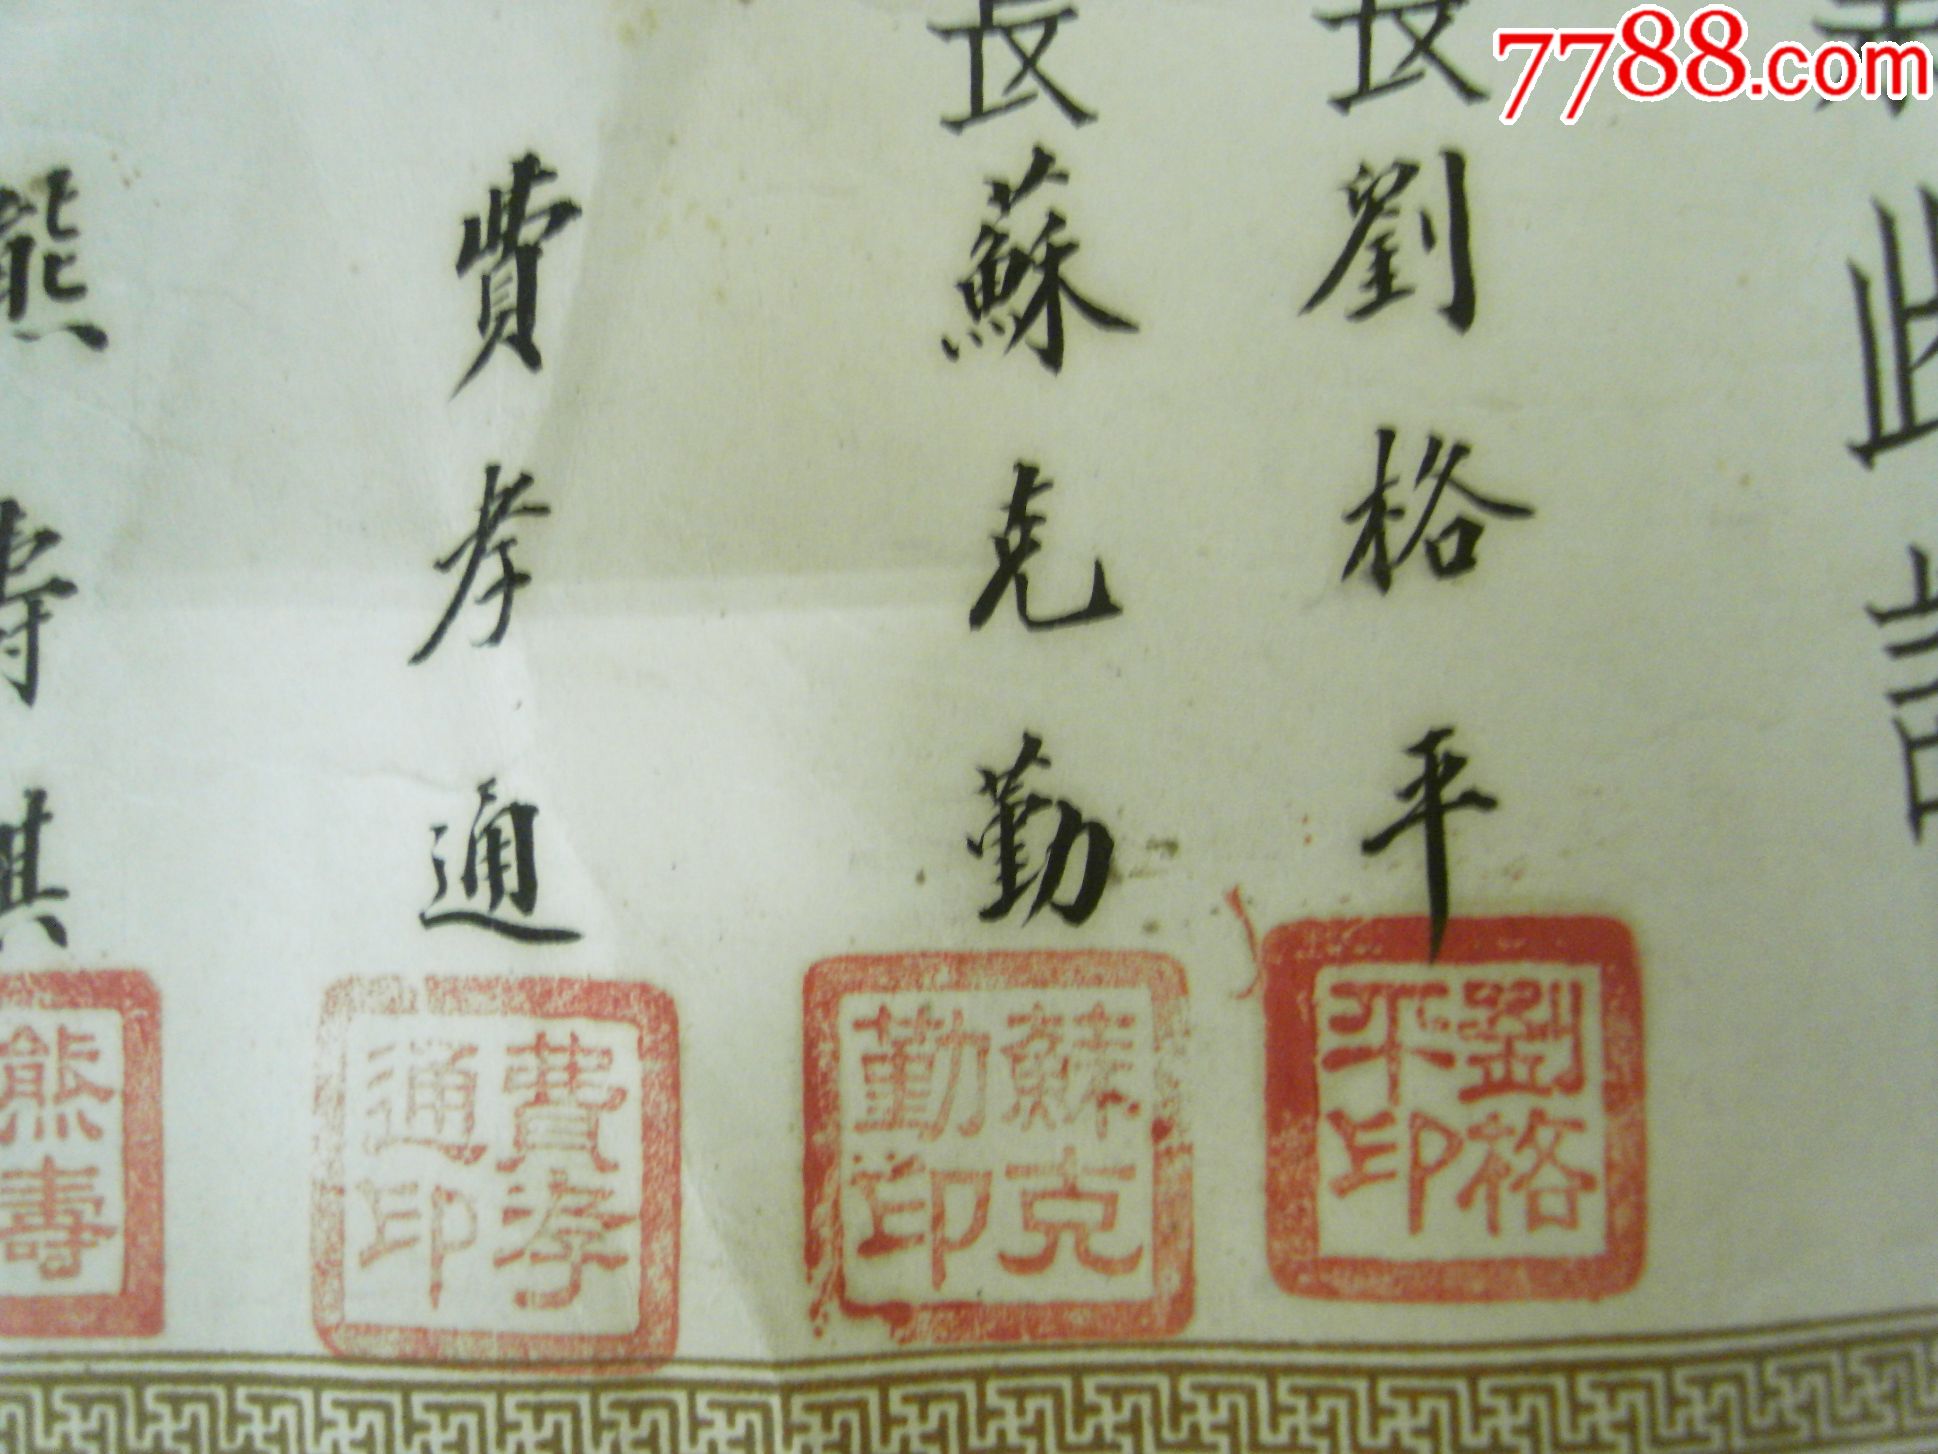 7788.com
此
長劉格平
劉格平印
長蘇克勤
蘇克勤印
費孝通
費孝通印
熊壽祺
熊壽